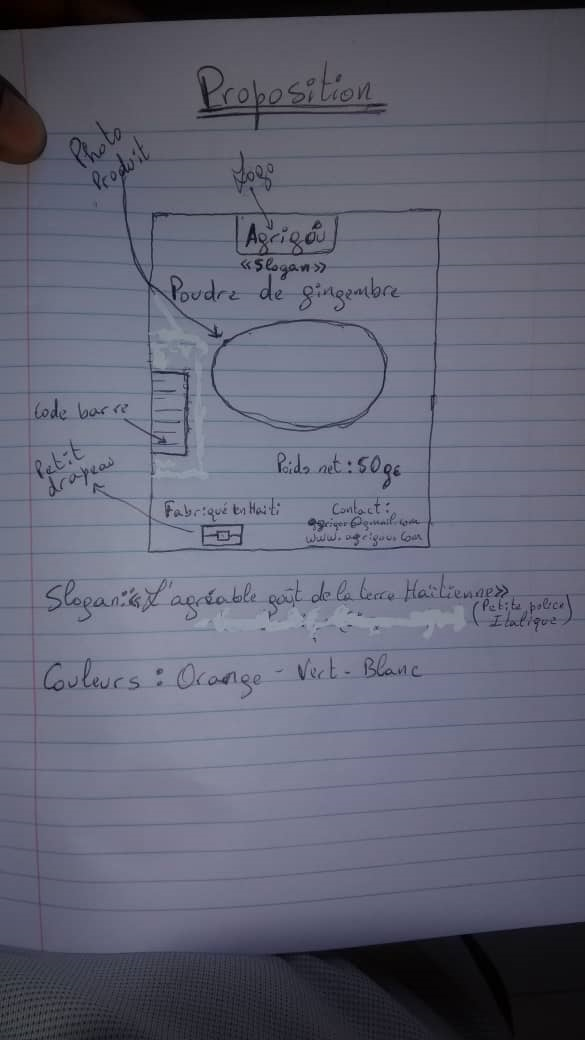 Proposition
Photo
Produit
Logo
Agrigoû
«Slogan»
Poudre de gingembre
Code barre
Petit
drapeau
Poids net : 50gr
Fabriqué en Haiti
Contact :
@gmail.com
www.agrigou.com
Slogan : «L'agréable goût de la terre Haïtienne»
(Petite police
Italique)
Couleurs : Orange - Vert - Blanc